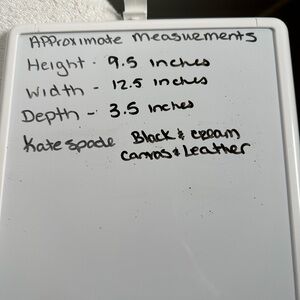 Approximate measuements
Height - 9.5 inches
Width - 12.5 inches
Depth - 3.5 inches
Kate spade Black & cream
canvas & Leather